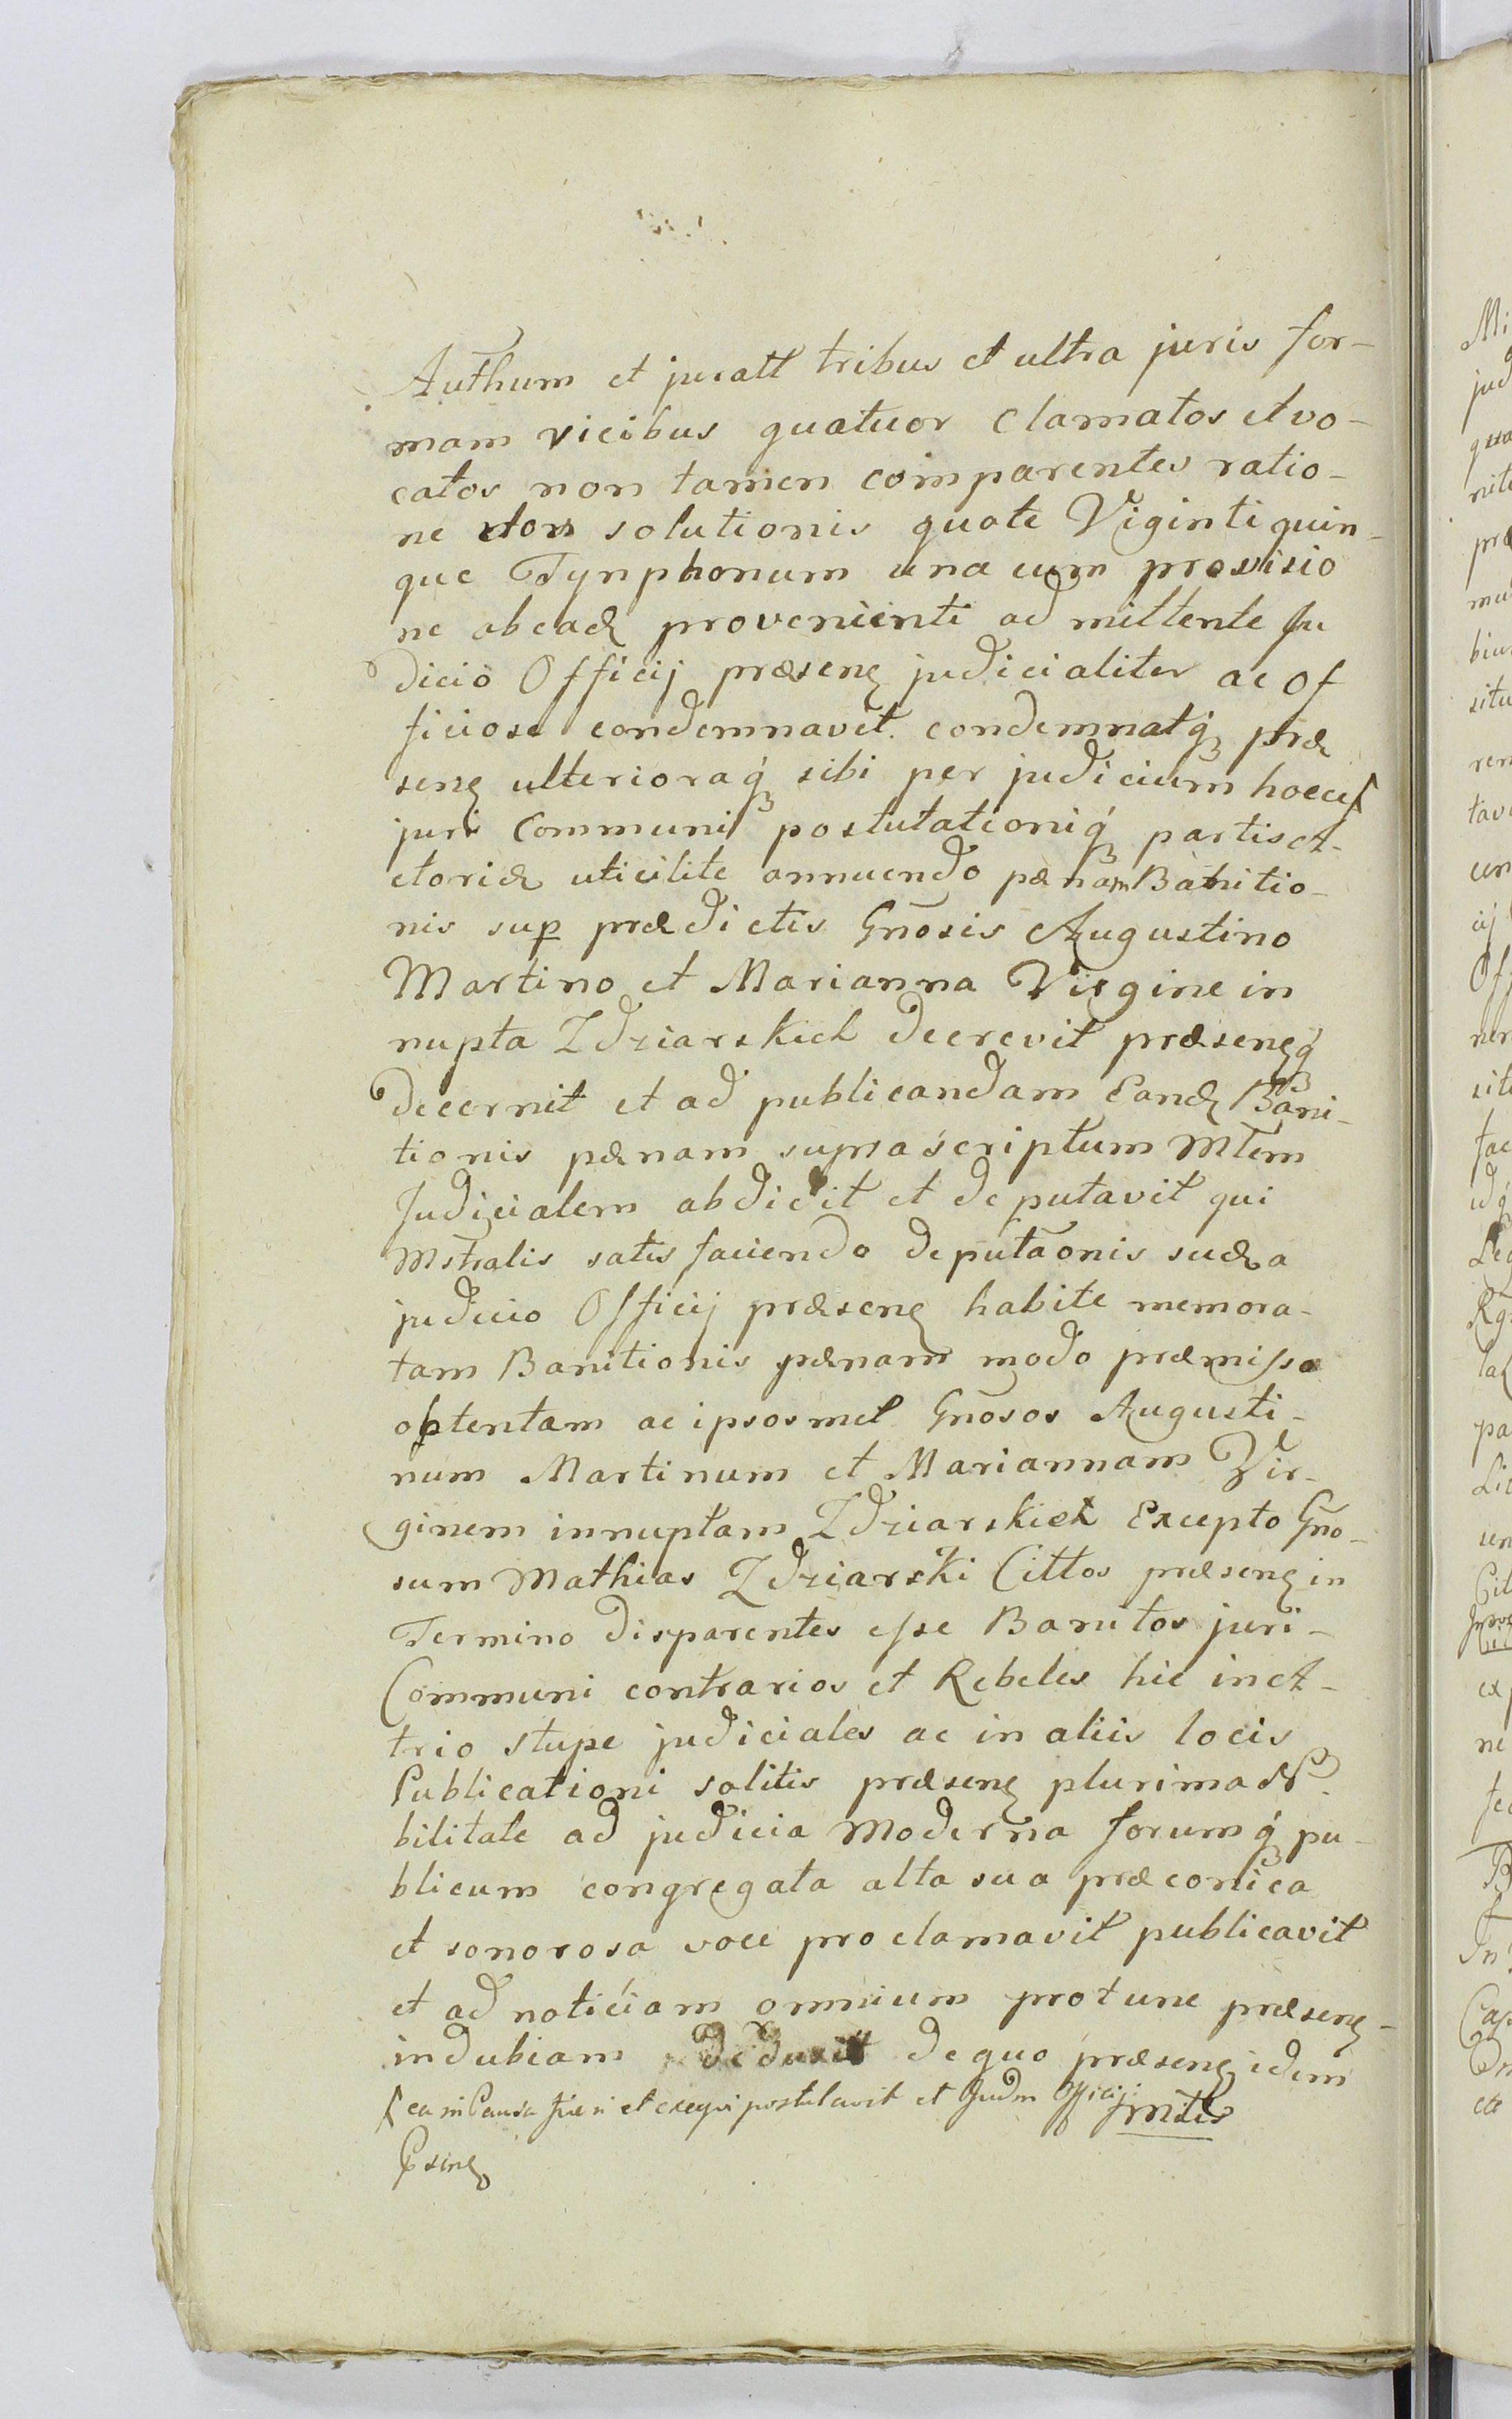 Authum et juratt tribus et ultra juris for-
mam vicibus quatuor Clamatos et vo-
catos non tamen comparentes ratio-
ne non solutionis quote Viginti quin-
que Tynphonum una cum provisio
ne ab eadȩ provenienti admittente Ju
dicio Officij præsenȩ judicialiter ac of
ficiose condemnavit. condemnatq́ȝ præ
senȩ ulterioraq́ȝ sibi per judicium hocce
juri Communi postulationiq́ȝ partis A-
ctoriæ uti cilite annuendo pænam Banitio-
nis sup prædictis Gnosis Augustino
Martino et Marianna Virgine in
nupta Zdziarskich decrevit præsenȩq́ȝ
decernit et ad publicandam Eandȩ Bani-
tionis pænam suprascriptum Mtem
Judicialem abdidit et deputavit qui
Mstralis satis faciendo deputaonis suæ a
judicio Officij præsenȩ habite memora-
tam Banitionis pænam modo præmisso
obtentam ac ipsosmet Gnosos Augusti-
num Martinum et Mariannam Vir-
ginem innuptam Zdziarskich Excepto Gno-
sum Mathias Zdziarski Cittos præsenȩ in
Termino disparentes esse Banitos juri-
Communi contrarios et Rebeles hic in A-
trio stupe judiciales ac in aliis locis
Publicationi solitis præsenȩ plurima N
bilitate ad judicia Moderna forumq́ȝ pu-
blicum congregata alta sua præconica
et sonorosa voce proclamavit publicavit
et ad noticiam omnium protunc præsenȩ-
indubiam deduxit de quo præsenȩ idem
ea in Causa fieri et exequi postulavit et Judm Officij
Mstlis
Psenȩ